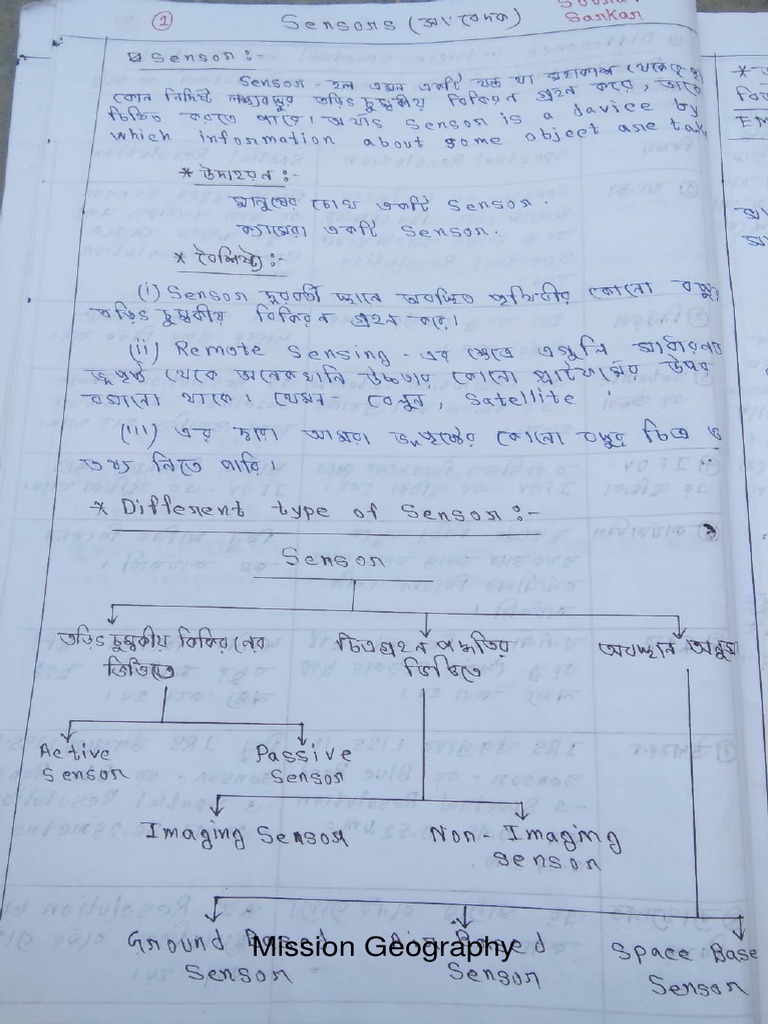 ①
Sensors (সংবেদক)
Sarkar
Sensor :-
Sensor - হল এমন একটি যন্ত্র যা মহাকাশ থেকে
কোন নির্দিষ্ট লক্ষ্যবস্তুর তড়িৎ চুম্বকীয় বিকিরন গ্রহন করে, তাকে
চিহ্নিত করতে পারে। অর্থাৎ Sensor is a davice by
which information about some object are tak
* উদাহরন :-
মানুষের চোখ একটি Sensor.
ক্যামেরা একটি Sensor.
* বৈশিষ্ট্য :-
(i) Sensor দূরবর্তী স্থানে অবস্থিত পৃথিবীর কোনো বস্তুর
তড়িৎ চুম্বকীয় বিকিরন গ্রহন করে।
(ii) Remote Sensing - এর ক্ষেত্রে এগুলি সাধারনত
ভূপৃষ্ঠ থেকে অনেকখানি উচ্চতার কোনো প্ল্যাটফর্মের উপর
বসানো থাকে। যেমন - বেলুন, Satellite
(iii) এর দ্বারা আমরা ভূপৃষ্ঠের কোনো বস্তুর চিত্র ও
তথ্য নিতে পারি।
* Different type of Sensor :-
Sensor
তড়িৎ চুম্বকীয় বিকিরনের চিত্রগ্রহন পদ্ধতির অবস্থান
ভিত্তিতে ভিত্তিতে
Active Passive
Sensor Sensor
Imaging Sensor Non-Imaging
Sensor
Ground Based Air Based Space Base
Sensor Sensor Sensor
Mission Geography